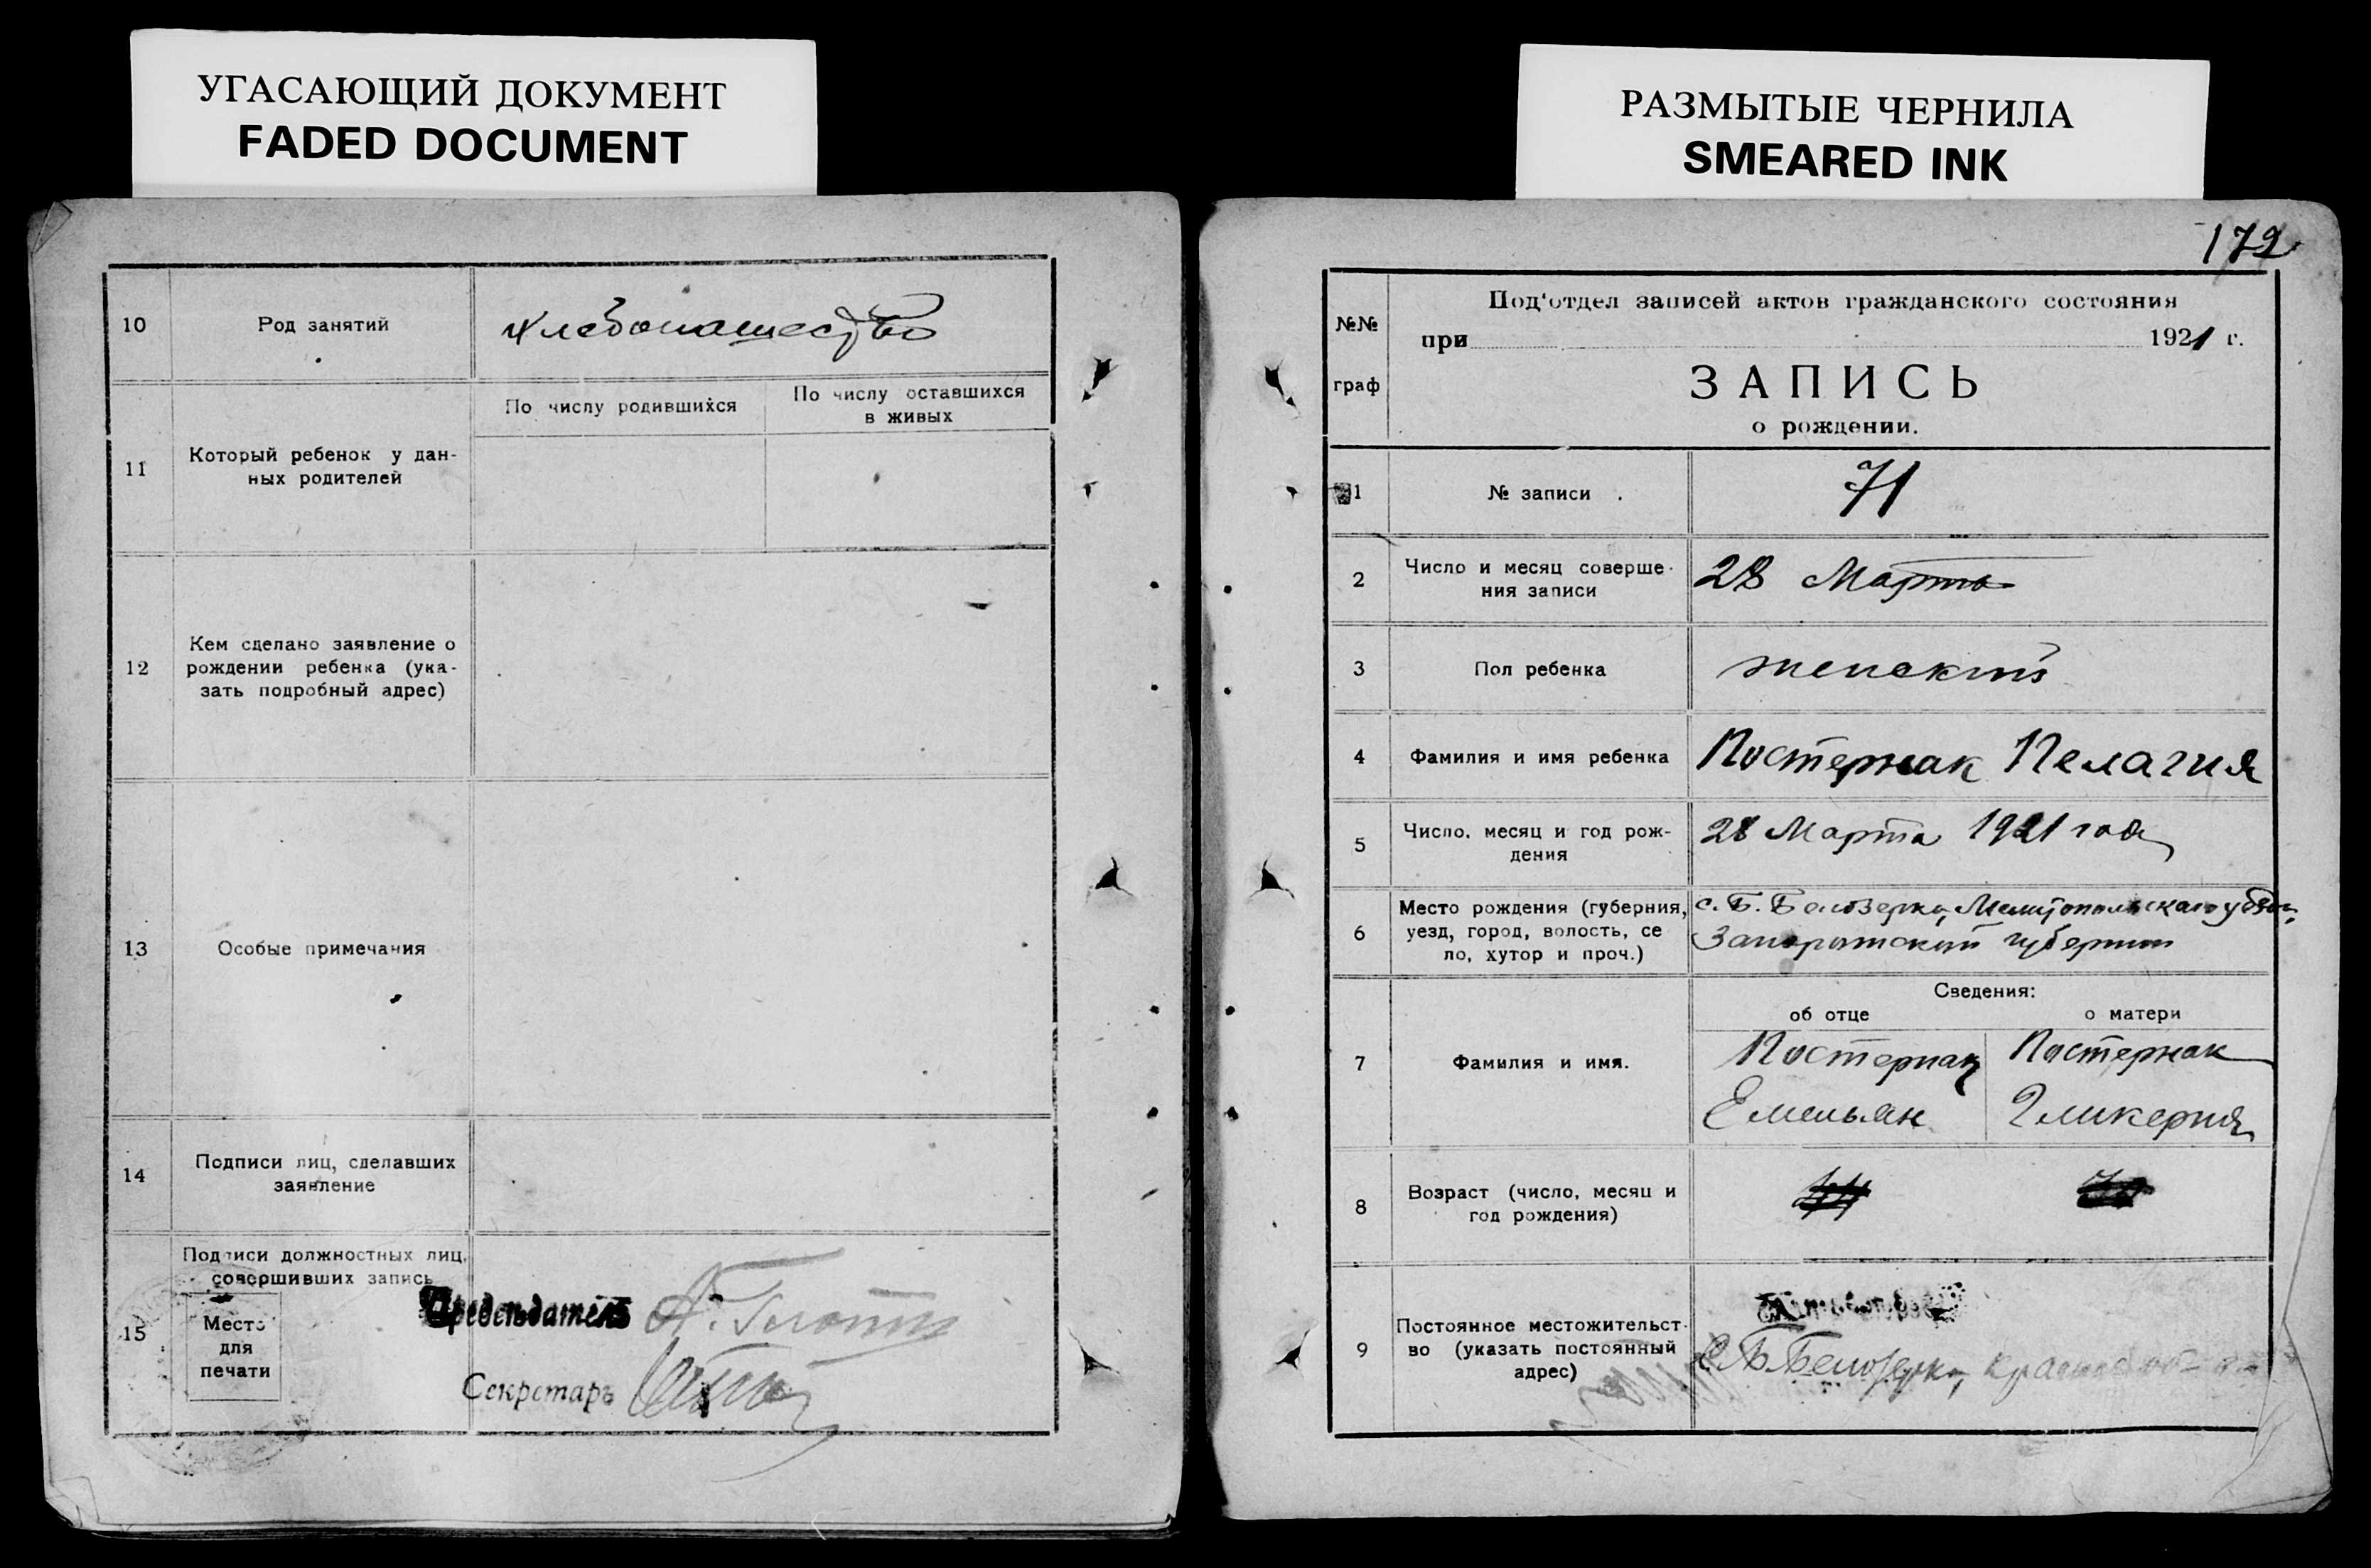 УГАСАЮЩИЙ ДОКУМЕНТ
FADED DOCUMENT
10
Род занятий
Хлебопашество
11
Который ребенок у дан-
ных родителей
По числу родившихся
По числу оставшихся
в живых
12
Кем сделано заявление о
рождении ребенка (ука-
зать подробный адрес)
13
Особые примечания
14
Подписи лиц, сделавших
заявление
15
Подписи должностных лиц,
совершивших запись
Место
для
печати
Председатель
Секретарь
РАЗМЫТЫЕ ЧЕРНИЛА
SMEARED INK
172
№№
граф
Под'отдел записей актов гражданского состояния
при 1921 г.
ЗАПИСЬ
о рождении.
1
№ записи
71
2
Число и месяц соверше-
ния записи
28 Марта
3
Пол ребенка
женский
4
Фамилия и имя ребенка
Постернак Пелагия
5
Число, месяц и год рож-
дения
28 Марта 1921 года
6
Место рождения (губерния,
уезд, город, волость, се
ло, хутор и проч.)
с. Б. Белозерка, Мелитопольскаго уезда,
Запорожской губернии
Сведения:
об отце
о матери
7
Фамилия и имя.
Постернак
Емельян
Постернак
Гликерия
8
Возраст (число, месяц и
год рождения)
9
Постоянное местожительст-
во (указать постоянный
адрес)
С. Б. Белозерка,